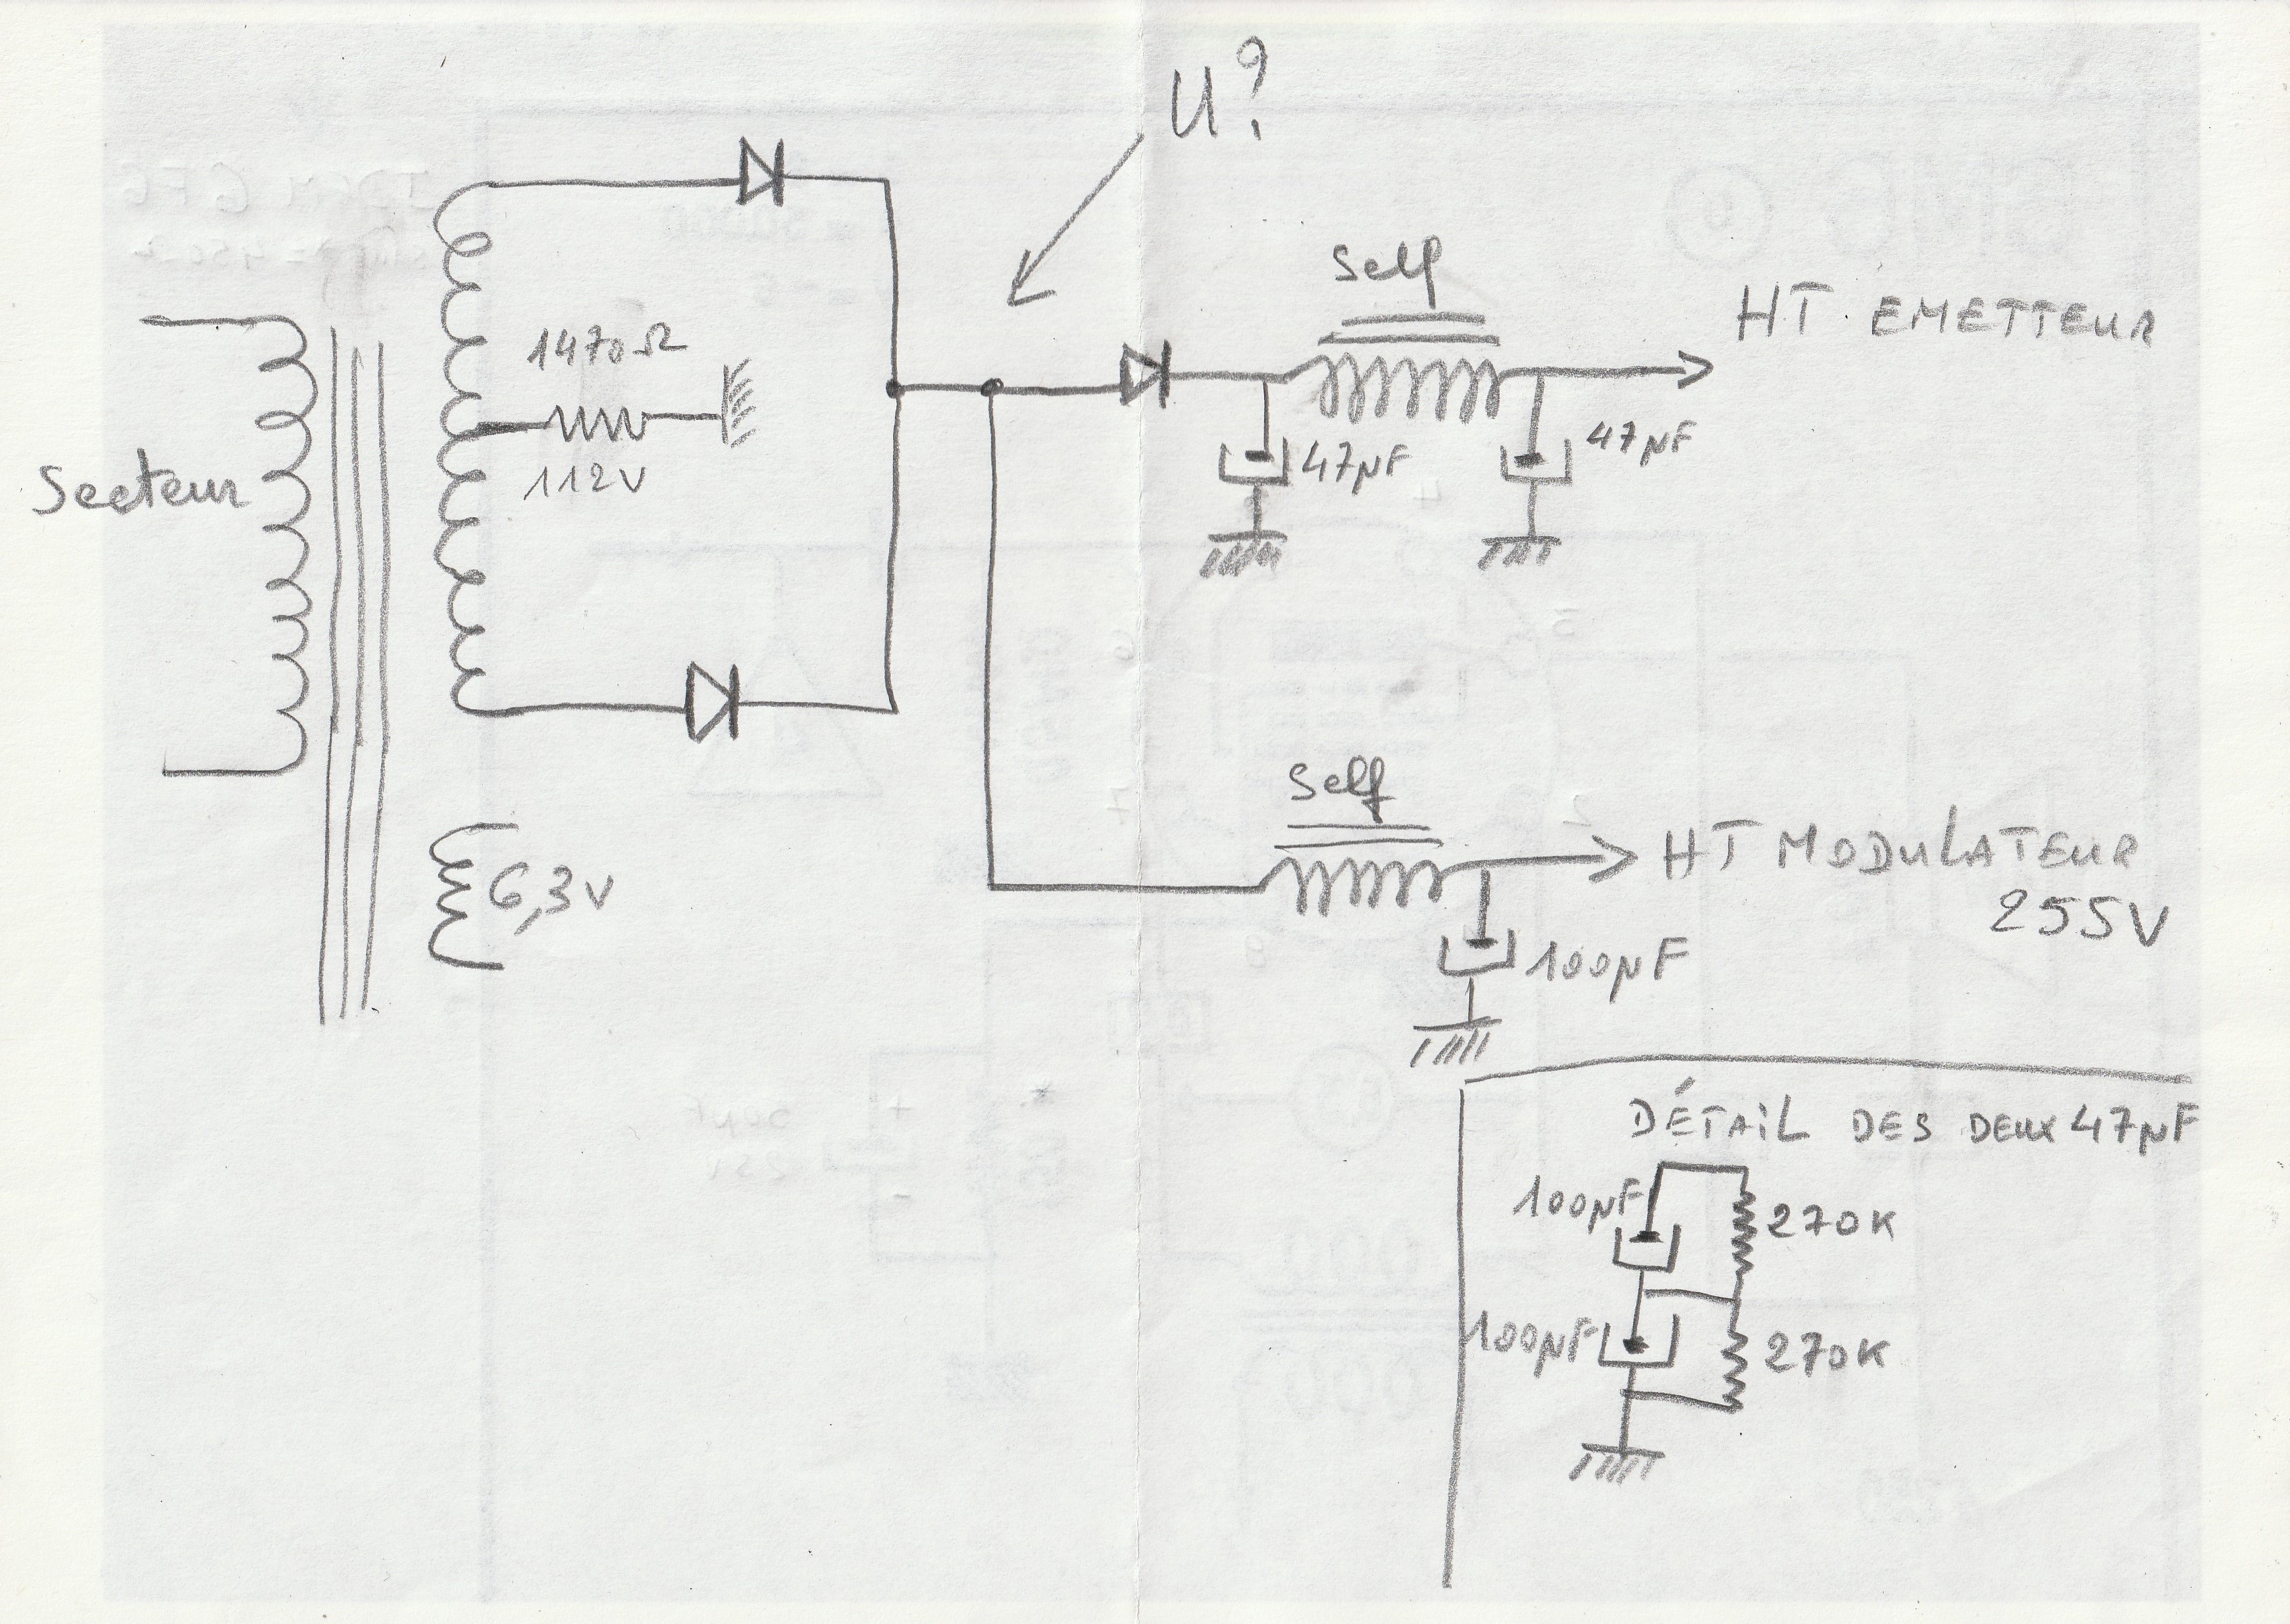 U?
Self
HT EMETTEUR
1470Ω
112V
47µF
47µF
Secteur
Self
HT MODULATEUR
255V
6,3V
100µF
DÉTAiL DES DEUX 47µF
100µF
270K
100µF
270K